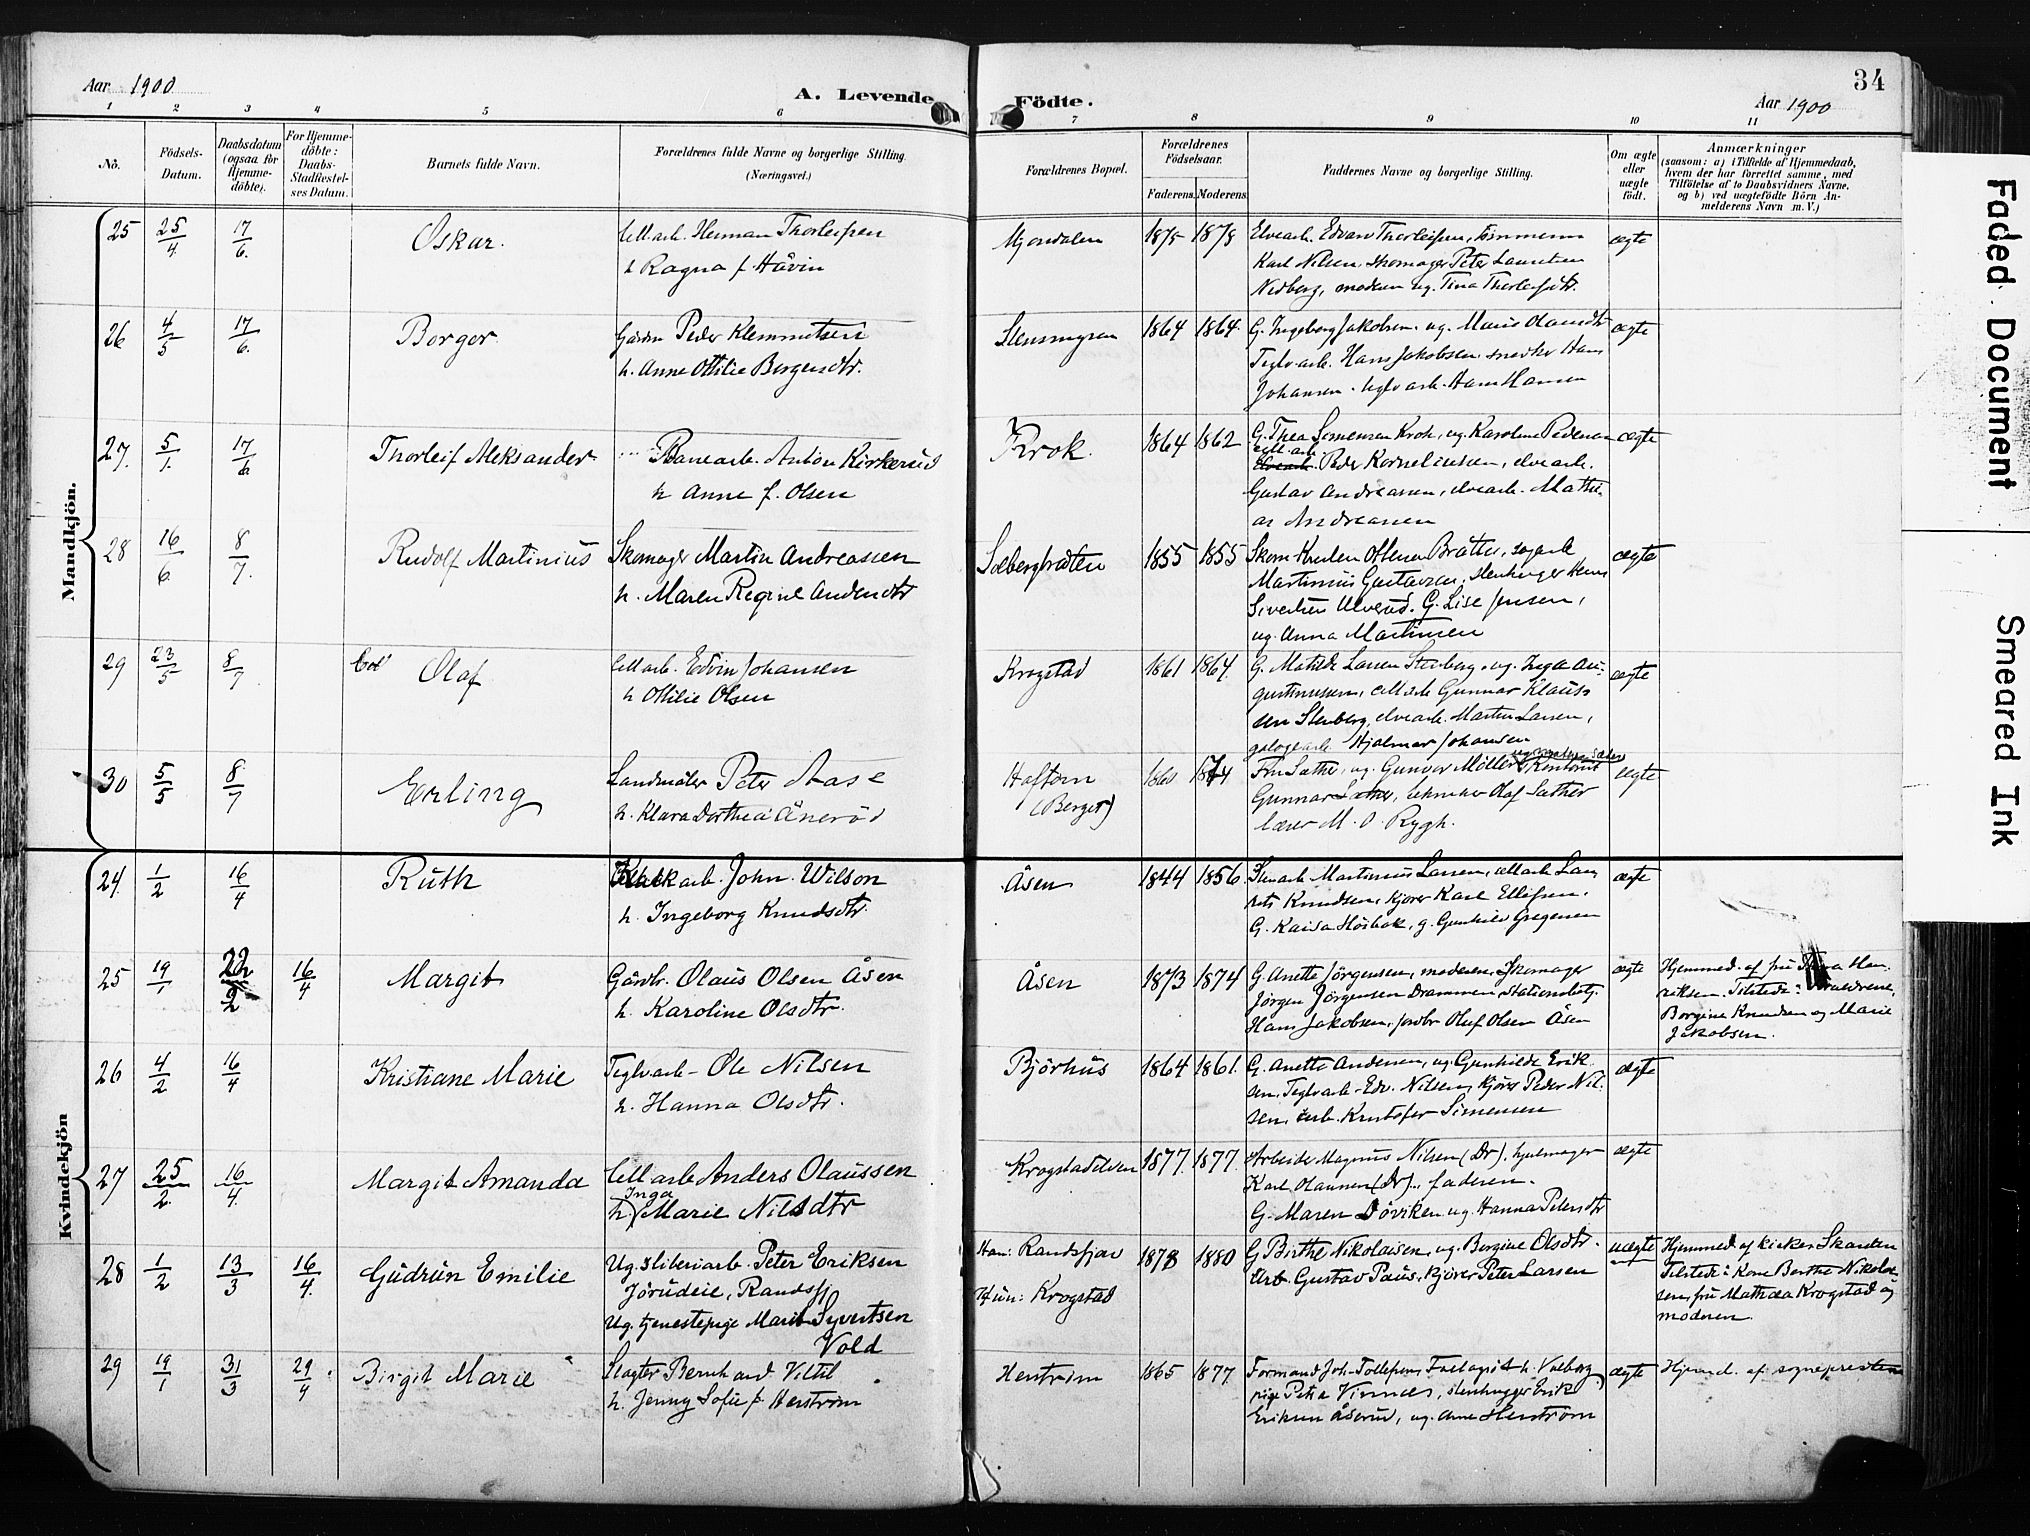 Aar 1900
A. Levende Födte.
Aar 1900
34
1 2 3 4 5 6 7 8 9 10 11
No.
Födsels-
Datum.
Daabsdatum
(ogsaa for
Hjemme-
döbte).
For Hjemme-
döbte:
Daabs-
Stadfæstel-
ses Datum.
Barnets fulde Navn.
Forældrenes fulde Navne og borgerlige Stilling.
(Næringsvei.)
Forældrenes Bopæl.
Forældrenes
Födselsaar.
Faderens. Moderens.
Faddernes Navne og borgerlige Stilling.
Om ægte
eller
uægte
födt.
Anmærkninger
(saasom: a) i Tilfælde af Hjemmedaab,
hvem der har forrettet samme, med
Tilföielse af to Daabsvidners Navne,
og b) ved uægtefödte Börn An-
melderens Navn m. V.)
Mandkjön.
25 25/4 17/6 Oskar.
Cell.arb. Herman Thorleifsen
h Ragna f. Håvin
Mjøndalen 1875 1878
Elvearb. Edvard Thorleifsen, tømmerm
Karl Nilsen, skomager Peter Lauritsen
Nedberg, moderen ug. Tina Thorleifsdtr.
ægte
26 4/5 17/6 Borger
Gårdm Peder Klemmetsen
h. Anne Ottilie Borgersdtr.
Stensmyren 1864 1864.
G. Ingeborg Jakobsen, ug. Marie Olausdtr
Teglv.arb. Hans Jakobsen, snedker Hans
Johansen. teglv.arb. Hans Hansen
ægte
27. 5/1. 17/6 Thorleif Aleksander
Banearb. Anton Kirkerud
h Anne f. Olsen
Krok. 1864 1862
G. Thea Simensen Krok, ug. Karoline Pedersen
cell.arb
Elvearb. Peder Kornelinssen, elvearb.
Gustav Andreassen, elvearb. Mathi-
as Andreassen
ægte
28 16/6 8/7. Rudolf Martinius
Skomager Martin Andreassen
h. Maren Regine Andersdtr
Solbergbråten 1855 1855
Martinius Gustavsen, stenhugger Hans
Sivertsen Ulverud. G. Lise Jensen,
ug. Anna Martinsen
ægte
29 23/5 8/7 Olaf
Cell.arb. Edvin Johansen
h Ottilie Olsen
Krogstad 1861 1864.
G. Matilde Larsen Stenberg, ug. Inga Au-
gustinussen, cell.arb Gunnar Klaus-
sen Stenberg, elvearb. Martin Larsen,
Hjalmar Johansen
ægte
30 5/5 8/7 Erling
Landmåler Peter Aase
h. Klara Dorthea Ånerød
Haftorn
(Berger)
1874
Fru Sæther, ug. Gunvor Møller, Kontorist
Gunnar Sæther, tekniker Olaf Sæther
lærer M. O. Rygh.
ægte
Kvindekjön
24 1/2 16/4 Ruth
arb. John Wilson
h. Ingeborg Knudsdtr.
Åsen 1844 1856
Martinius Larsen, cell.arb Lau
rits Knudsen, kjører Karl Ellefsen.
G. Kaisa Høibak, g. Gunhild Gregersen
ægte
25 19/1 22/2 16/4 Margit
Gårdbr. Olaus Olsen Åsen
h. Karoline Olsdtr.
Åsen 1873 1874
G. Anette Jørgensen, moderen, skomager
Jørgen Jørgensen Drammen, stationsbetj.
Hans Jakobsen, gårdbr Oluf Olsen Åsen
ægte
Hjemmed. af fru Thea Hen-
riksen. Tilstede: Forældrene,
Borgine Knudsen og Marie
Jakobsen.
26 4/2 16/4 Kristiane Marie
Teglv.arb. Ole Nilsen
h. Hanna Olsdtr.
Bjørhus 1864 1861.
G. Anette Andersen, ug. Gunhilde Erik
sen, Teglv.arb. Edv. Nilsen, kjører Peder Nil-
sen, arb. Kristofer Simensen
ægte
27 25/2. 16/4. Margit Amanda
Cell.arb Anders Olaussen
Inga
h. Marie Nilsdtr
Krogstadelven 1877 1877.
Arbeider Magnus Nilsen (Dr). hjulmager
Karl Olaussen (Dr). faderen.
G. Maren Døviken, ug. Hanna Petersdtr
ægte
28 1/2 13/3 16/4. Gudrun Emilie
Ug. sliberiarb. Peter Eriksen
Jørudeie, Randsfj
Ug. tjenestepige Marit Syvertsen
Vold
Han: Randsfjord
Hun: Krogstad
1878 1880
G Birthe Nikolaisen, ug. Borgine Olsdtr.
Arb. Gustav Paus, kjører Peter Larsen
uægte
Hjemmed. af kirkes. Skarsten
Tilstede: Kone Berthe Nikolai-
sen, fru Mathea Krogstad og
moderen.
29 19/1 31/3 29/4 Birgit Marie
Slagter Bernhard Viltil
h. Jenny Sofie f. Herstrøm
Herstrøm 1865 1877.
Formand Joh. Tollefsen
pige Petra Vinnæs, stenhugger Erik
Eriksen Åserud, ug. Anne Herstrøm
ægte
Hjemd. af sognepresten
Faded Document
Smeared Ink